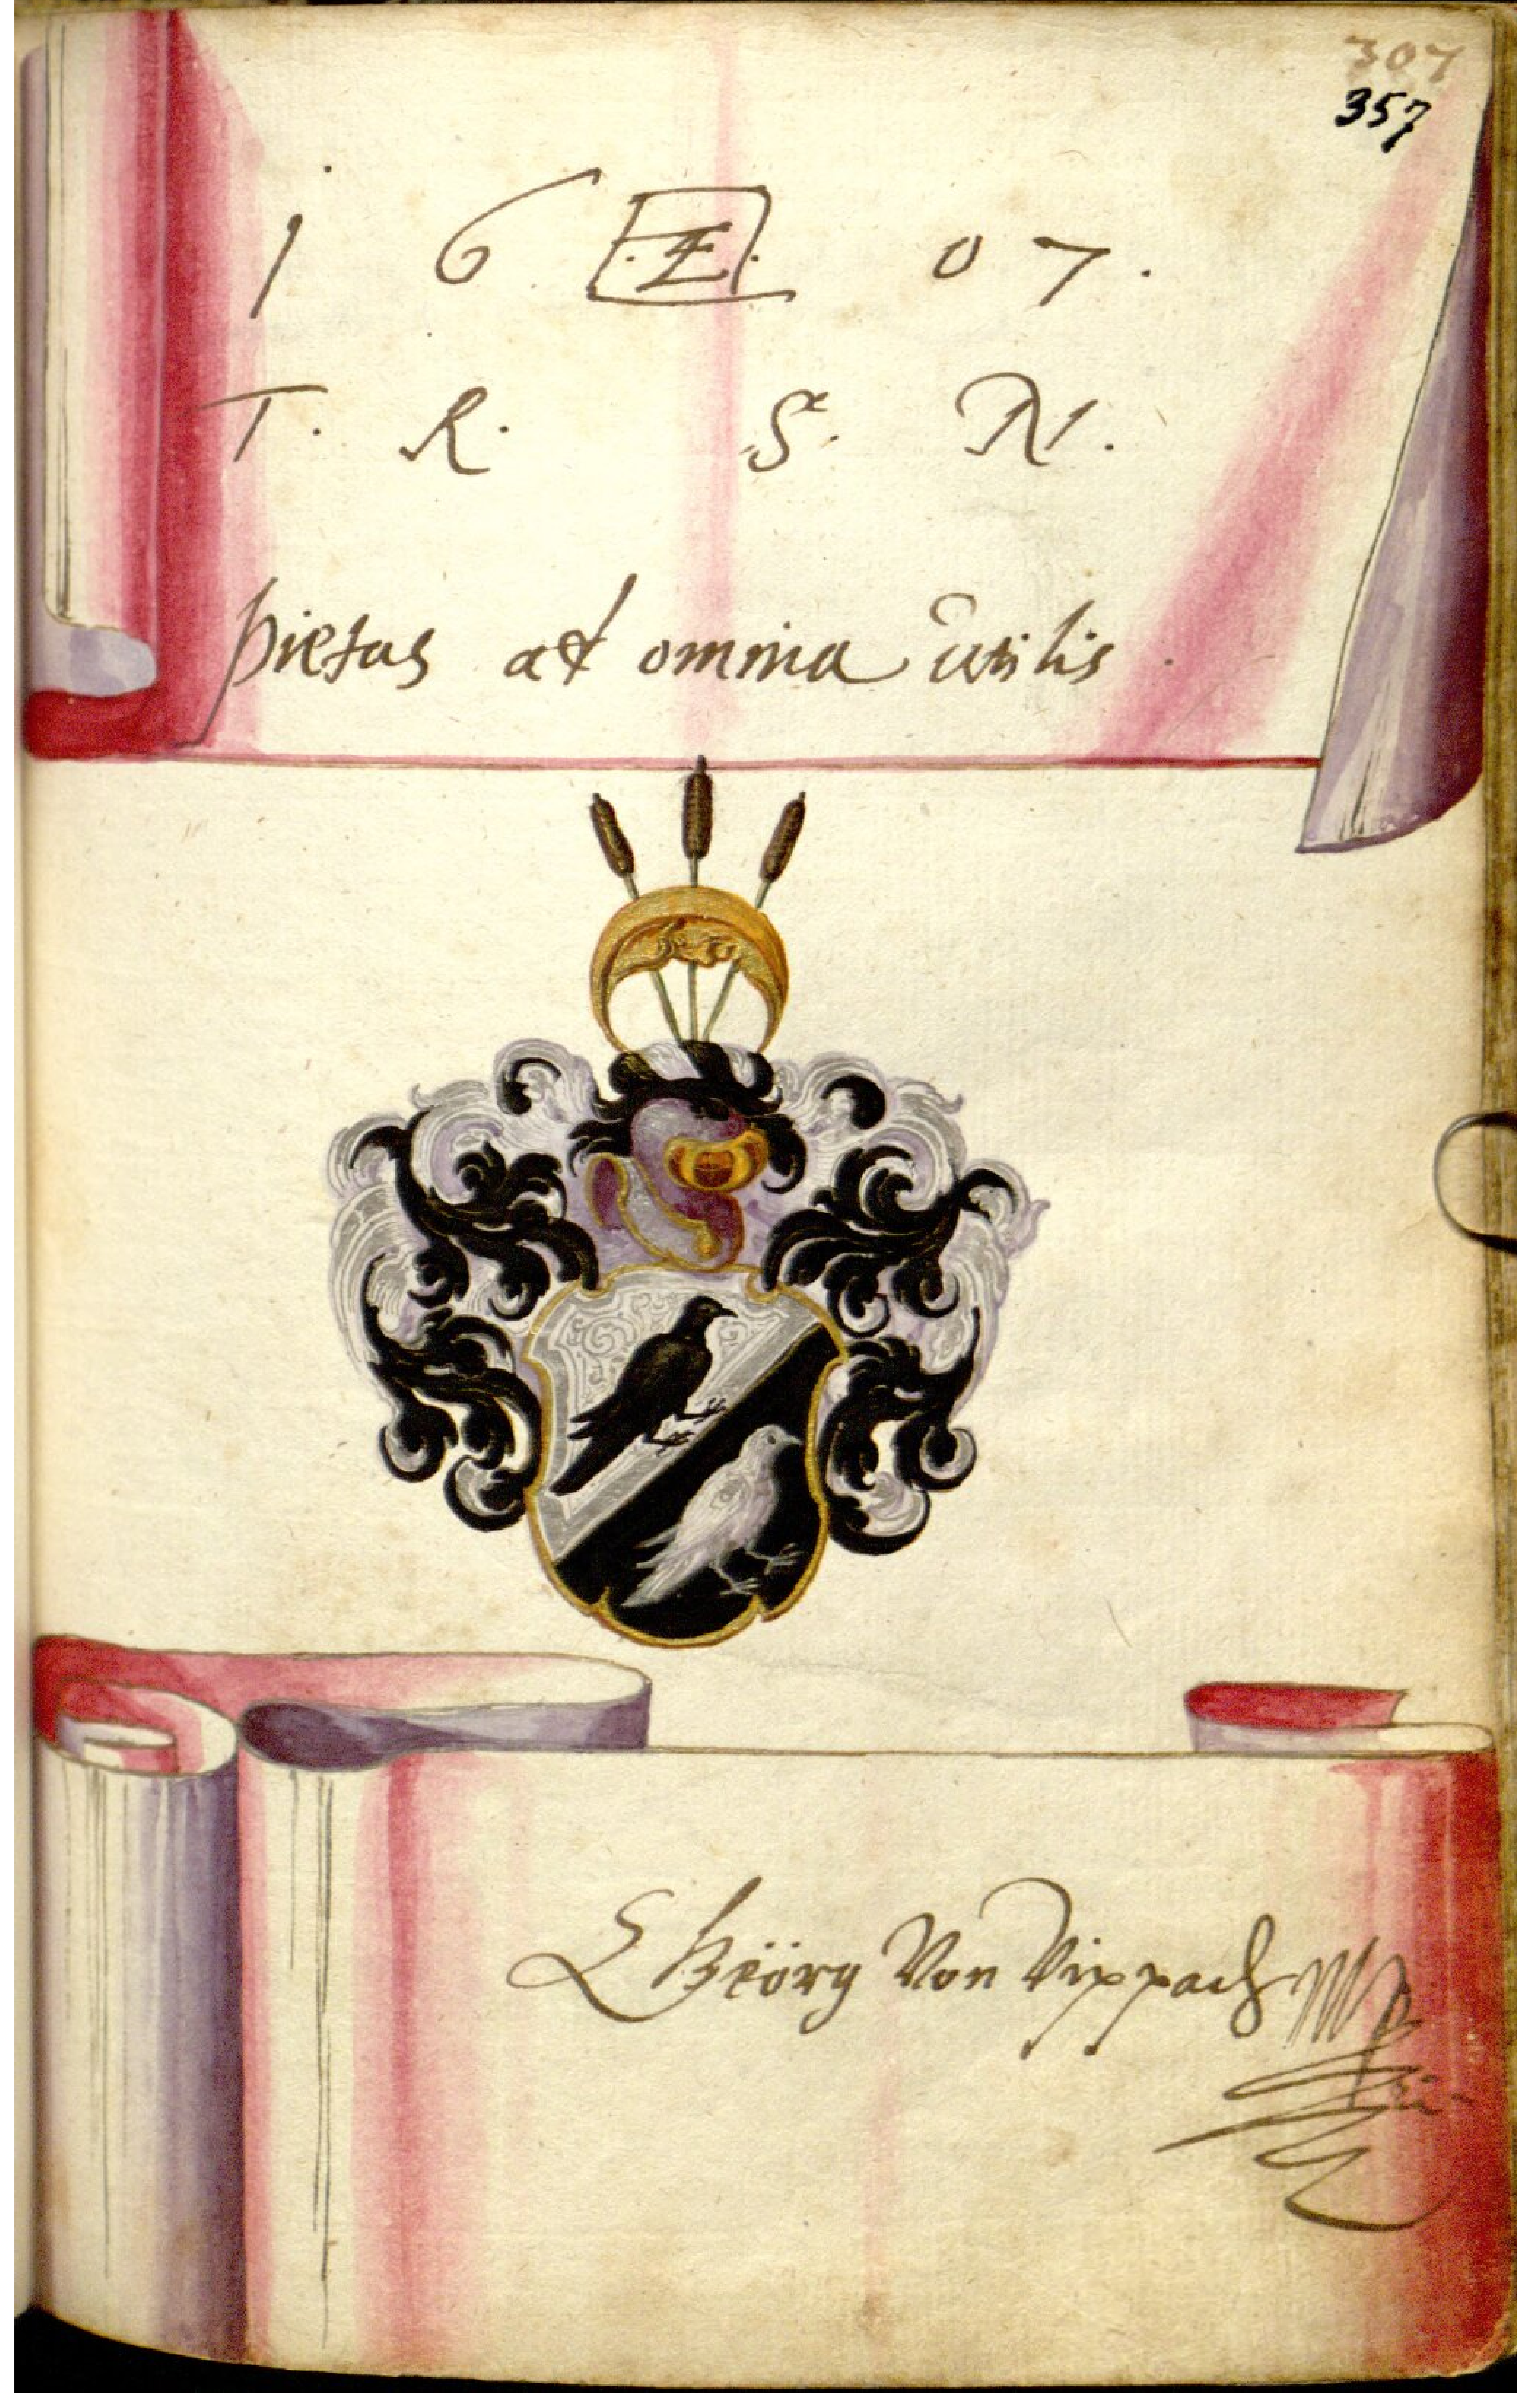 307
357
1 6 .Æ. 0 7 .
T. R. S. N.
pietas ad omnia utilis .
Geörg Von Vippach